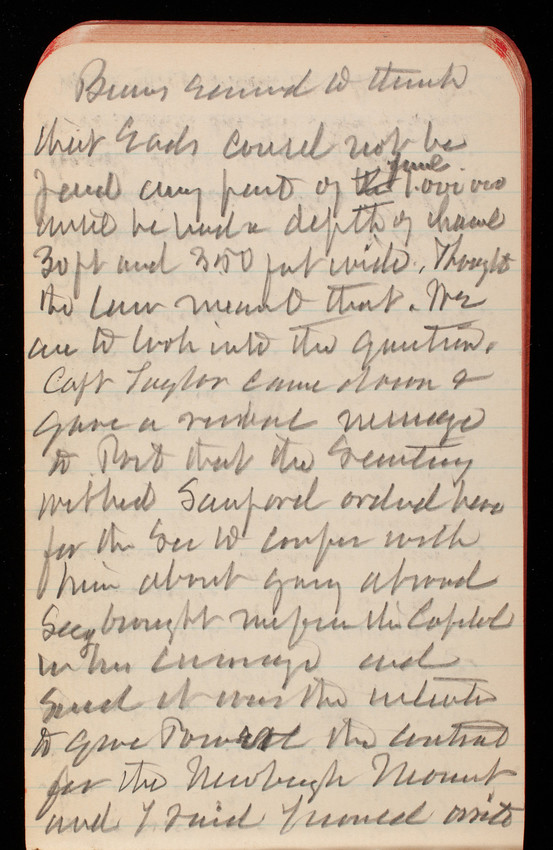 Burns seemed to think
that Eads could not be
paid any part of the fund 1.000 000
until he had a depth of channel
30 ft and 350 feet wide. Thought
the law meant that. We
are to look into the question.
Capt Taylor came down &
gave a verbal message
to Post that the Secretary
wished Sanford ordered here
for the Sec to confer with
him about going abroad
Secy brought me from the Capitol
in his carriage and
said it was the intention
to give the contract
for the Newburgh Monut
and I said I would write